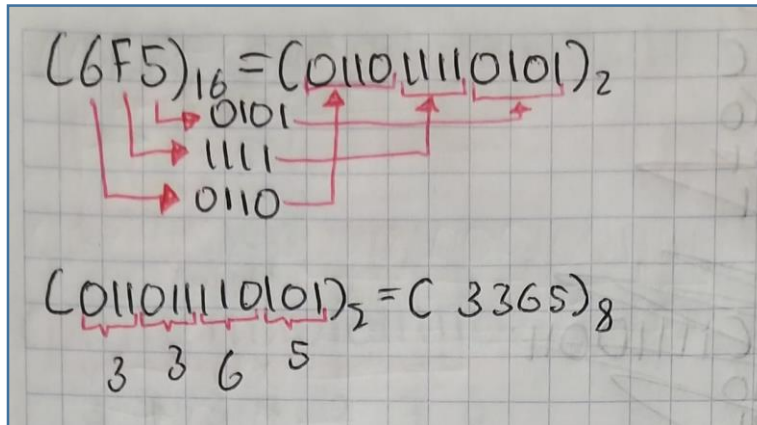 (6F5)16=(011011110101)2
0101
1111
0110
(011011110101)2=( 3365)8
3 3 6 5